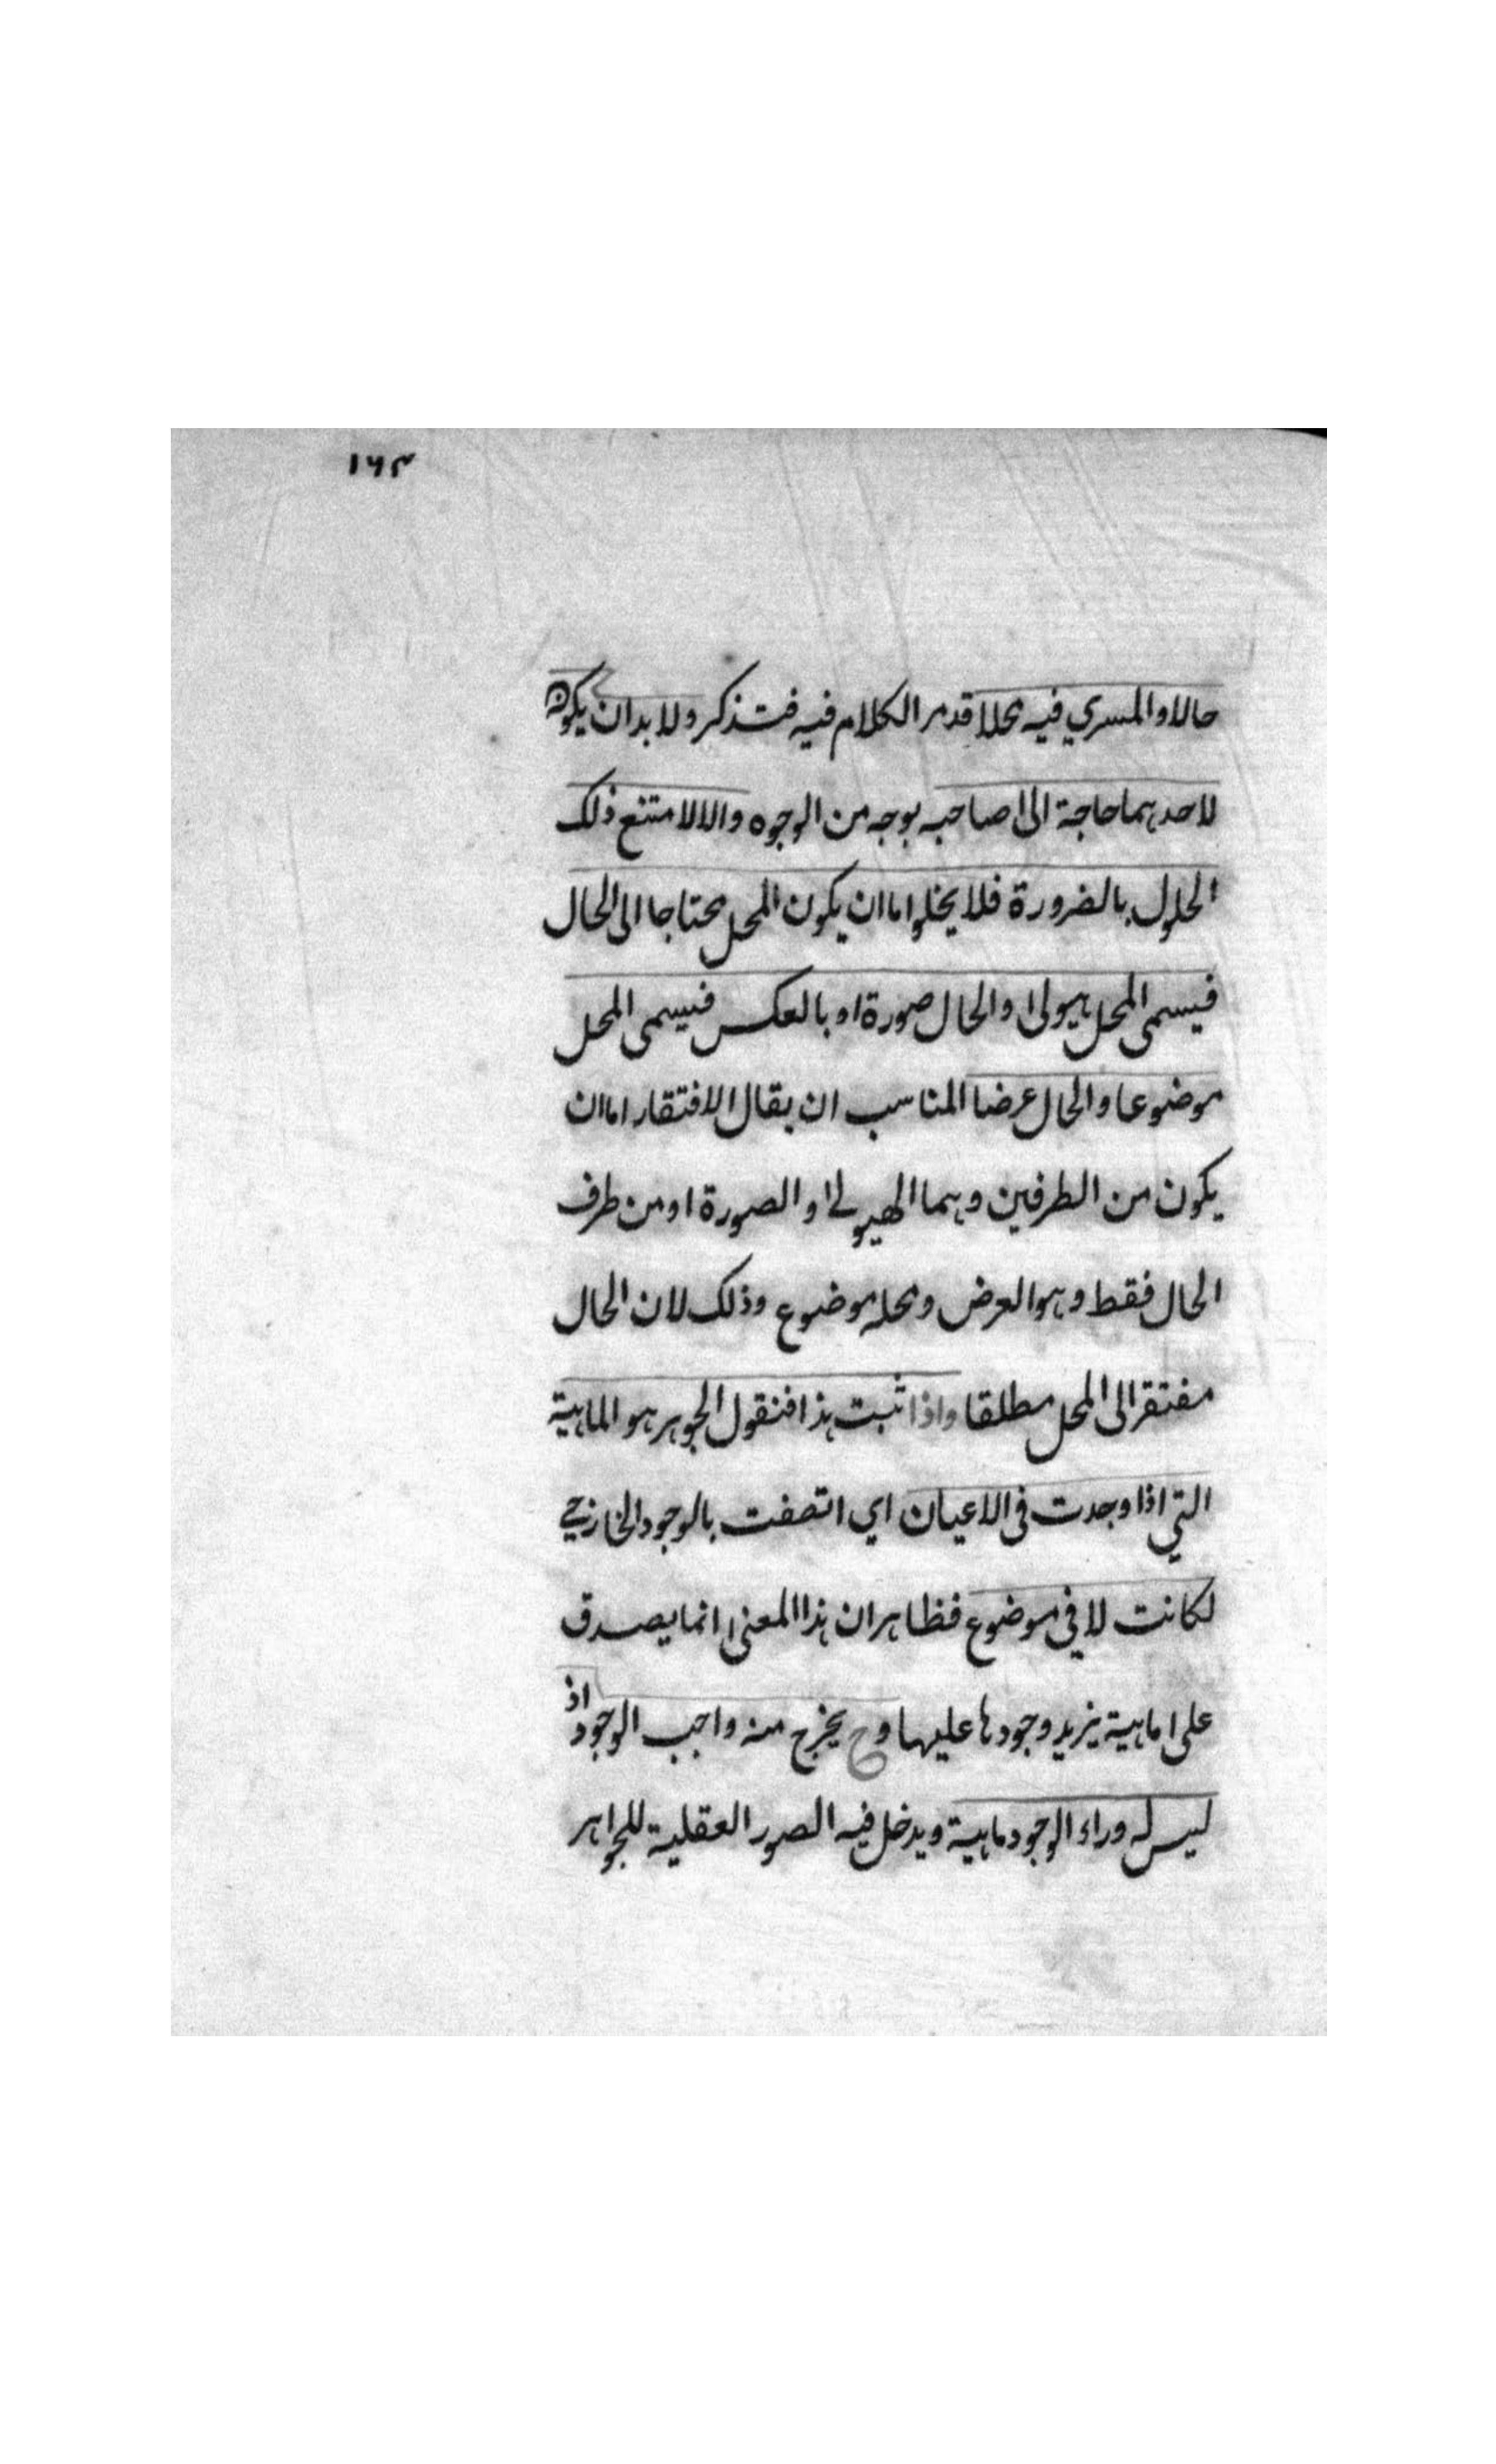 ١٦٣
حالا والمسري فيه محلا قد مر الكلام فيه فتذكر ولا بد ان يكون
لاحدهما حاجة الى صاحبه بوجه من الوجوه والا لامتنع ذلك
الحلول بالضرورة فلا يخلوا اما ان يكون المحل محتاجا الى الحال
فيسمى المحل هيولى والحال صورة او بالعكس فيسمى المحل
موضوعا والحال عرضا المناسب ان يقال الافتقار اما ان
يكون من الطرفين وهما الهيولى والصورة او من طرف
الحال فقط وهو العرض ومحله موضوع وذلك لان الحال
مفتقر الى المحل مطلقا واذا ثبت هذا فنقول الجوهر هو الماهية
التي اذا وجدت في الاعيان اي اتصفت بالوجود الخارجي
لكانت لا في موضوع فظاهر ان هذا المعنى انما يصدق
على ماهية يزيد وجودها عليها وح يخرج منه واجب الوجود اذ
ليس له وراء الوجود ماهية ويدخل فيه الصور العقلية للجواهر